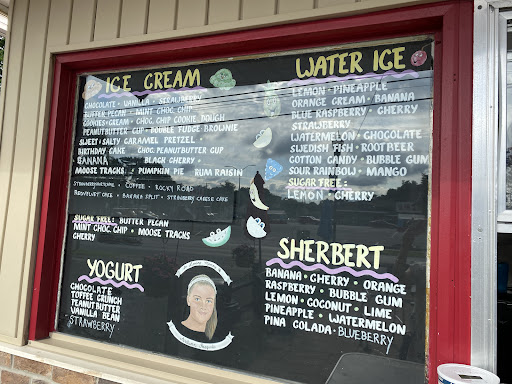 ICE CREAM
CHOCOLATE • VANILLA • STRAWBERRY
BUTTER PECAN • MINT CHOC. CHIP
COOKIES+CREAM • CHOC. CHIP COOKIE DOUGH
PEANUTBUTTER CUP • DOUBLE FUDGE BROWNIE
SWEET+SALTY CARAMEL PRETZEL •
BIRTHDAY CAKE • CHOC. PEANUTBUTTER CUP
BANANA BLACK CHERRY •
MOOSE TRACKS • PUMPKIN PIE RUM RAISIN
• COFFEE • ROCKY ROAD
• BANANA SPLIT • STRAWBERRY CHEESE CAKE
SUGAR FREE: BUTTER PECAN
MINT CHOC. CHIP • MOOSE TRACKS
CHERRY
YOGURT
CHOCOLATE
TOFFEE CRUNCH
PEANUTBUTTER
VANILLA BEAN
STRAWBERRY
WATER ICE
LEMON • PINEAPPLE
ORANGE CREAM • BANANA
BLUE RASPBERRY • CHERRY
STRAWBERRY
WATERMELON • CHOCOLATE
SWEDISH FISH • ROOTBEER
COTTON CANDY • BUBBLE GUM
SOUR RAINBOW • MANGO
SUGAR FREE:
LEMON • CHERRY
SHERBERT
BANANA • CHERRY • ORANGE
RASPBERRY • BUBBLE GUM
LEMON • COCONUT • LIME
PINEAPPLE • WATERMELON
PINA COLADA • BLUEBERRY